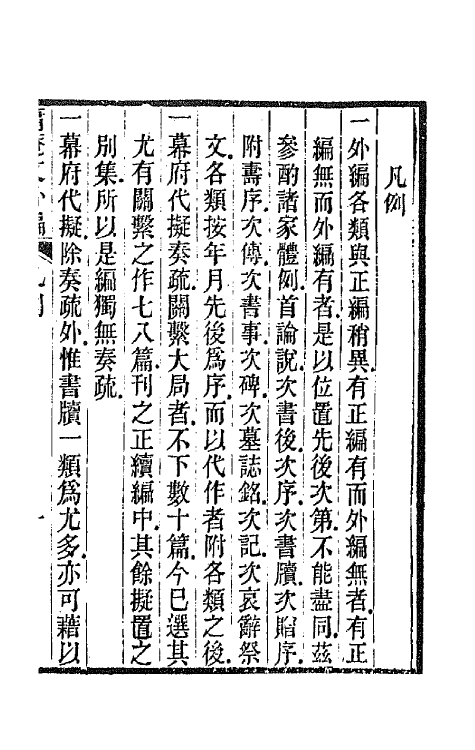 凡例
一外編各類與正編稍異有正編有而外編無者有正
編無而外編有者是以位置先後次第不能盡同茲
參酌諸家體例首論說次書後次序次書牘次贈序
附壽序次傳次書事次碑次墓誌銘次記次哀辭祭
文各類按年月先後爲序而以代作者附各類之後
一幕府代擬奏疏關繫大局者不下數十篇今已選其
尤有關繫之作七八篇刊之正續編中其餘擬置之
別集所以是編獨無奏疏
一幕府代擬除奏疏外惟書牘一類爲尤多亦可藉以